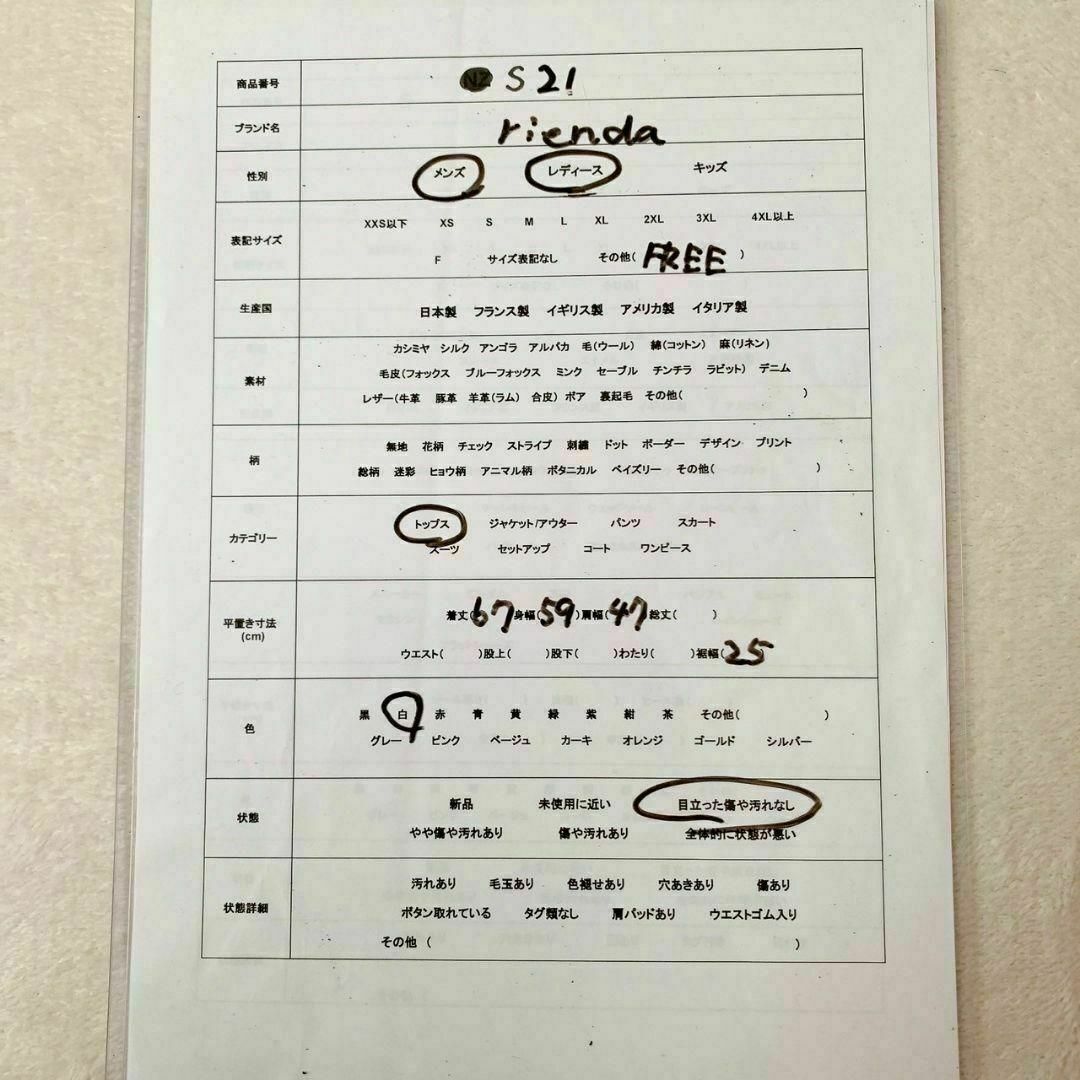 商品番号 NZ S 21
ブランド名 rienda
性別 メンズ レディース キッズ
XXS以下 XS S M L XL 2XL 3XL 4XL以上
表記サイズ
F サイズ表記なし その他( FREE )
生産国 日本製 フランス製 イギリス製 アメリカ製 イタリア製
カシミヤ シルク アンゴラ アルパカ 毛(ウール) 綿(コットン) 麻(リネン)
素材 毛皮(フォックス ブルーフォックス ミンク セーブル チンチラ ラビット) デニム
レザー(牛革 豚革 羊革(ラム) 合皮) ボア 裏起毛 その他( )
無地 花柄 チェック ストライプ 刺繍 ドット ボーダー デザイン プリント
柄
総柄 迷彩 ヒョウ柄 アニマル柄 ボタニカル ペイズリー その他( )
トップス ジャケット/アウター パンツ スカート
カテゴリー
スーツ セットアップ コート ワンピース
着丈( 67 身幅( 59 )肩幅( 47 総丈( )
平置き寸法
(cm)
ウエスト( )股上( )股下( )わたり( )裾幅( 25
黒 白 赤 青 黄 緑 紫 紺 茶 その他( )
色
グレー ピンク ベージュ カーキ オレンジ ゴールド シルバー
新品 未使用に近い 目立った傷や汚れなし
状態
やや傷や汚れあり 傷や汚れあり 全体的に状態が悪い
汚れあり 毛玉あり 色褪せあり 穴あきあり 傷あり
状態詳細 ボタン取れている タグ類なし 肩パッドあり ウエストゴム入り
その他 ( )